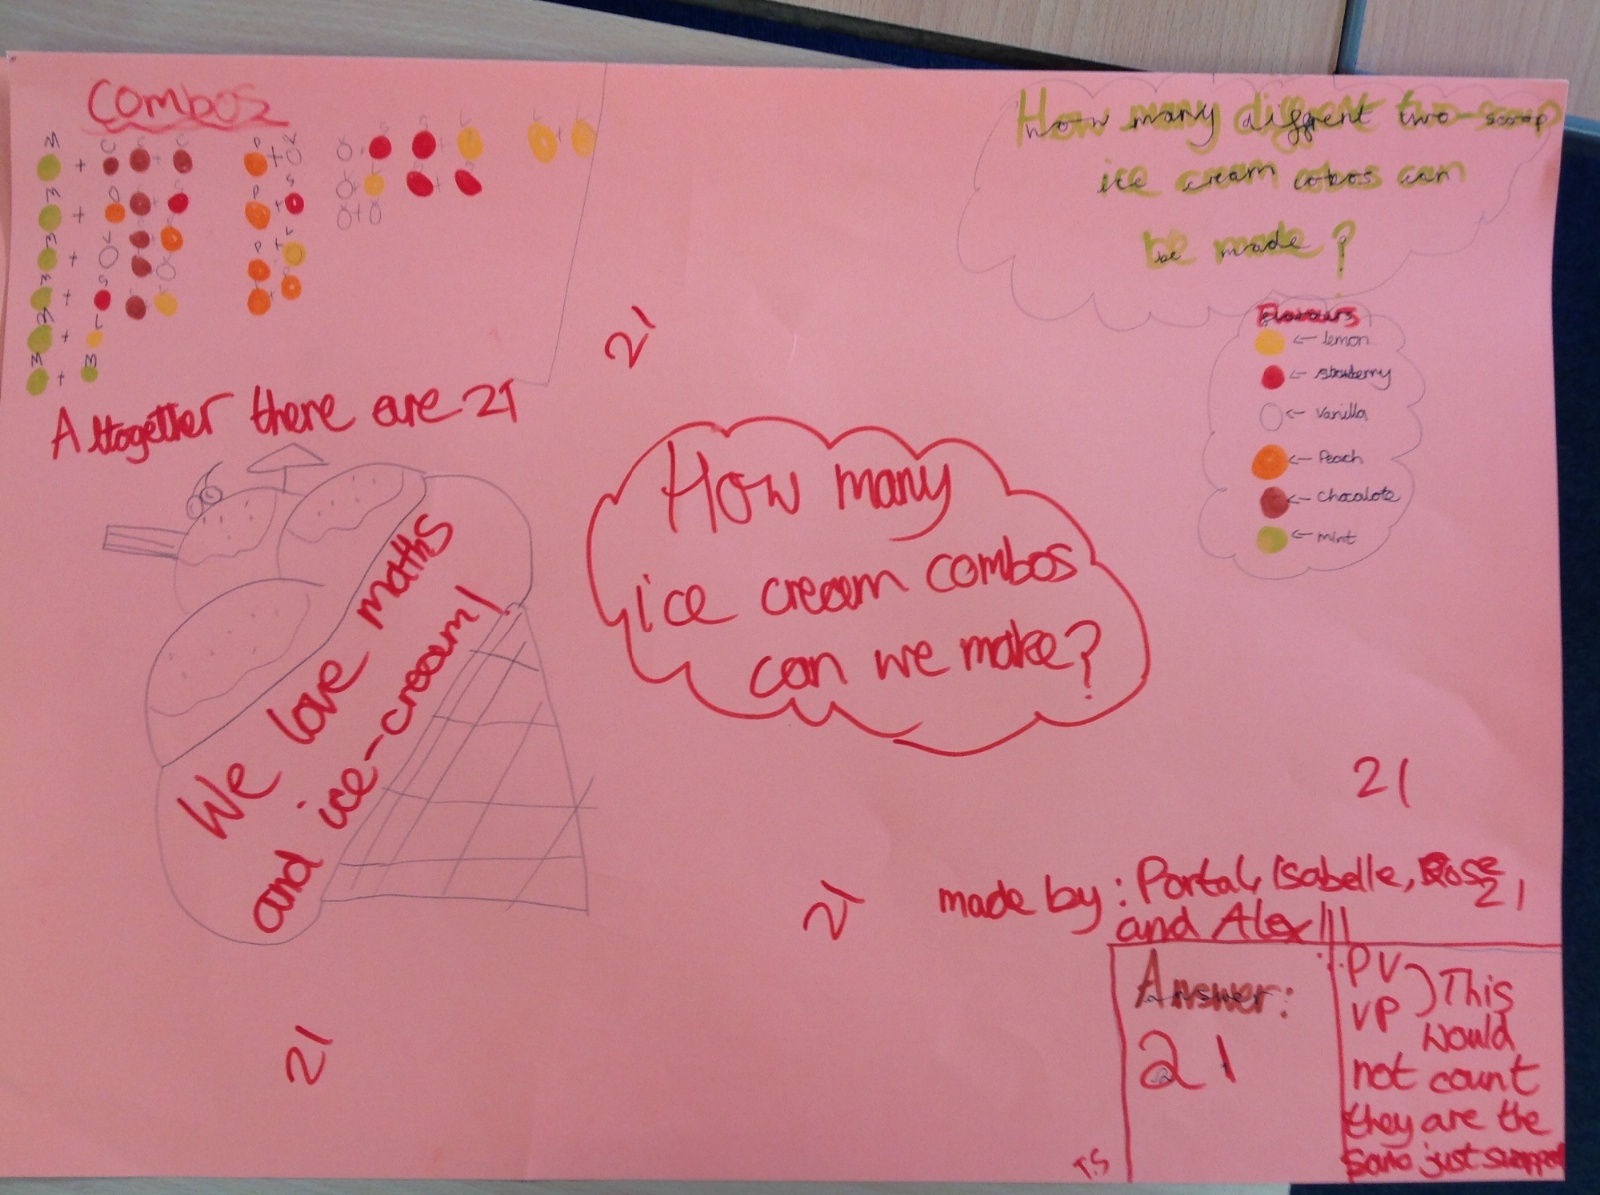 Combos
M C C C P V V S S L L L
M P C S P S V L S S
M V C P P L V V
M S C V P P
M L C L
M M
Altogether there are 21
We love maths
and ice-cream!
21
How many
ice cream combos
can we make?
How many diffrent two-scoop
ice cream cobos can
be made?
Flavours
← lemon
← strawberry
← Vanilla
← Peach
← Chocalote
← mint
21
21
21
made by: Portal, Isabelle, Rose
21
and Alex!!!
Answer:
21
PV
VP
) This
would
not count
they are the
same just swapped
T.S